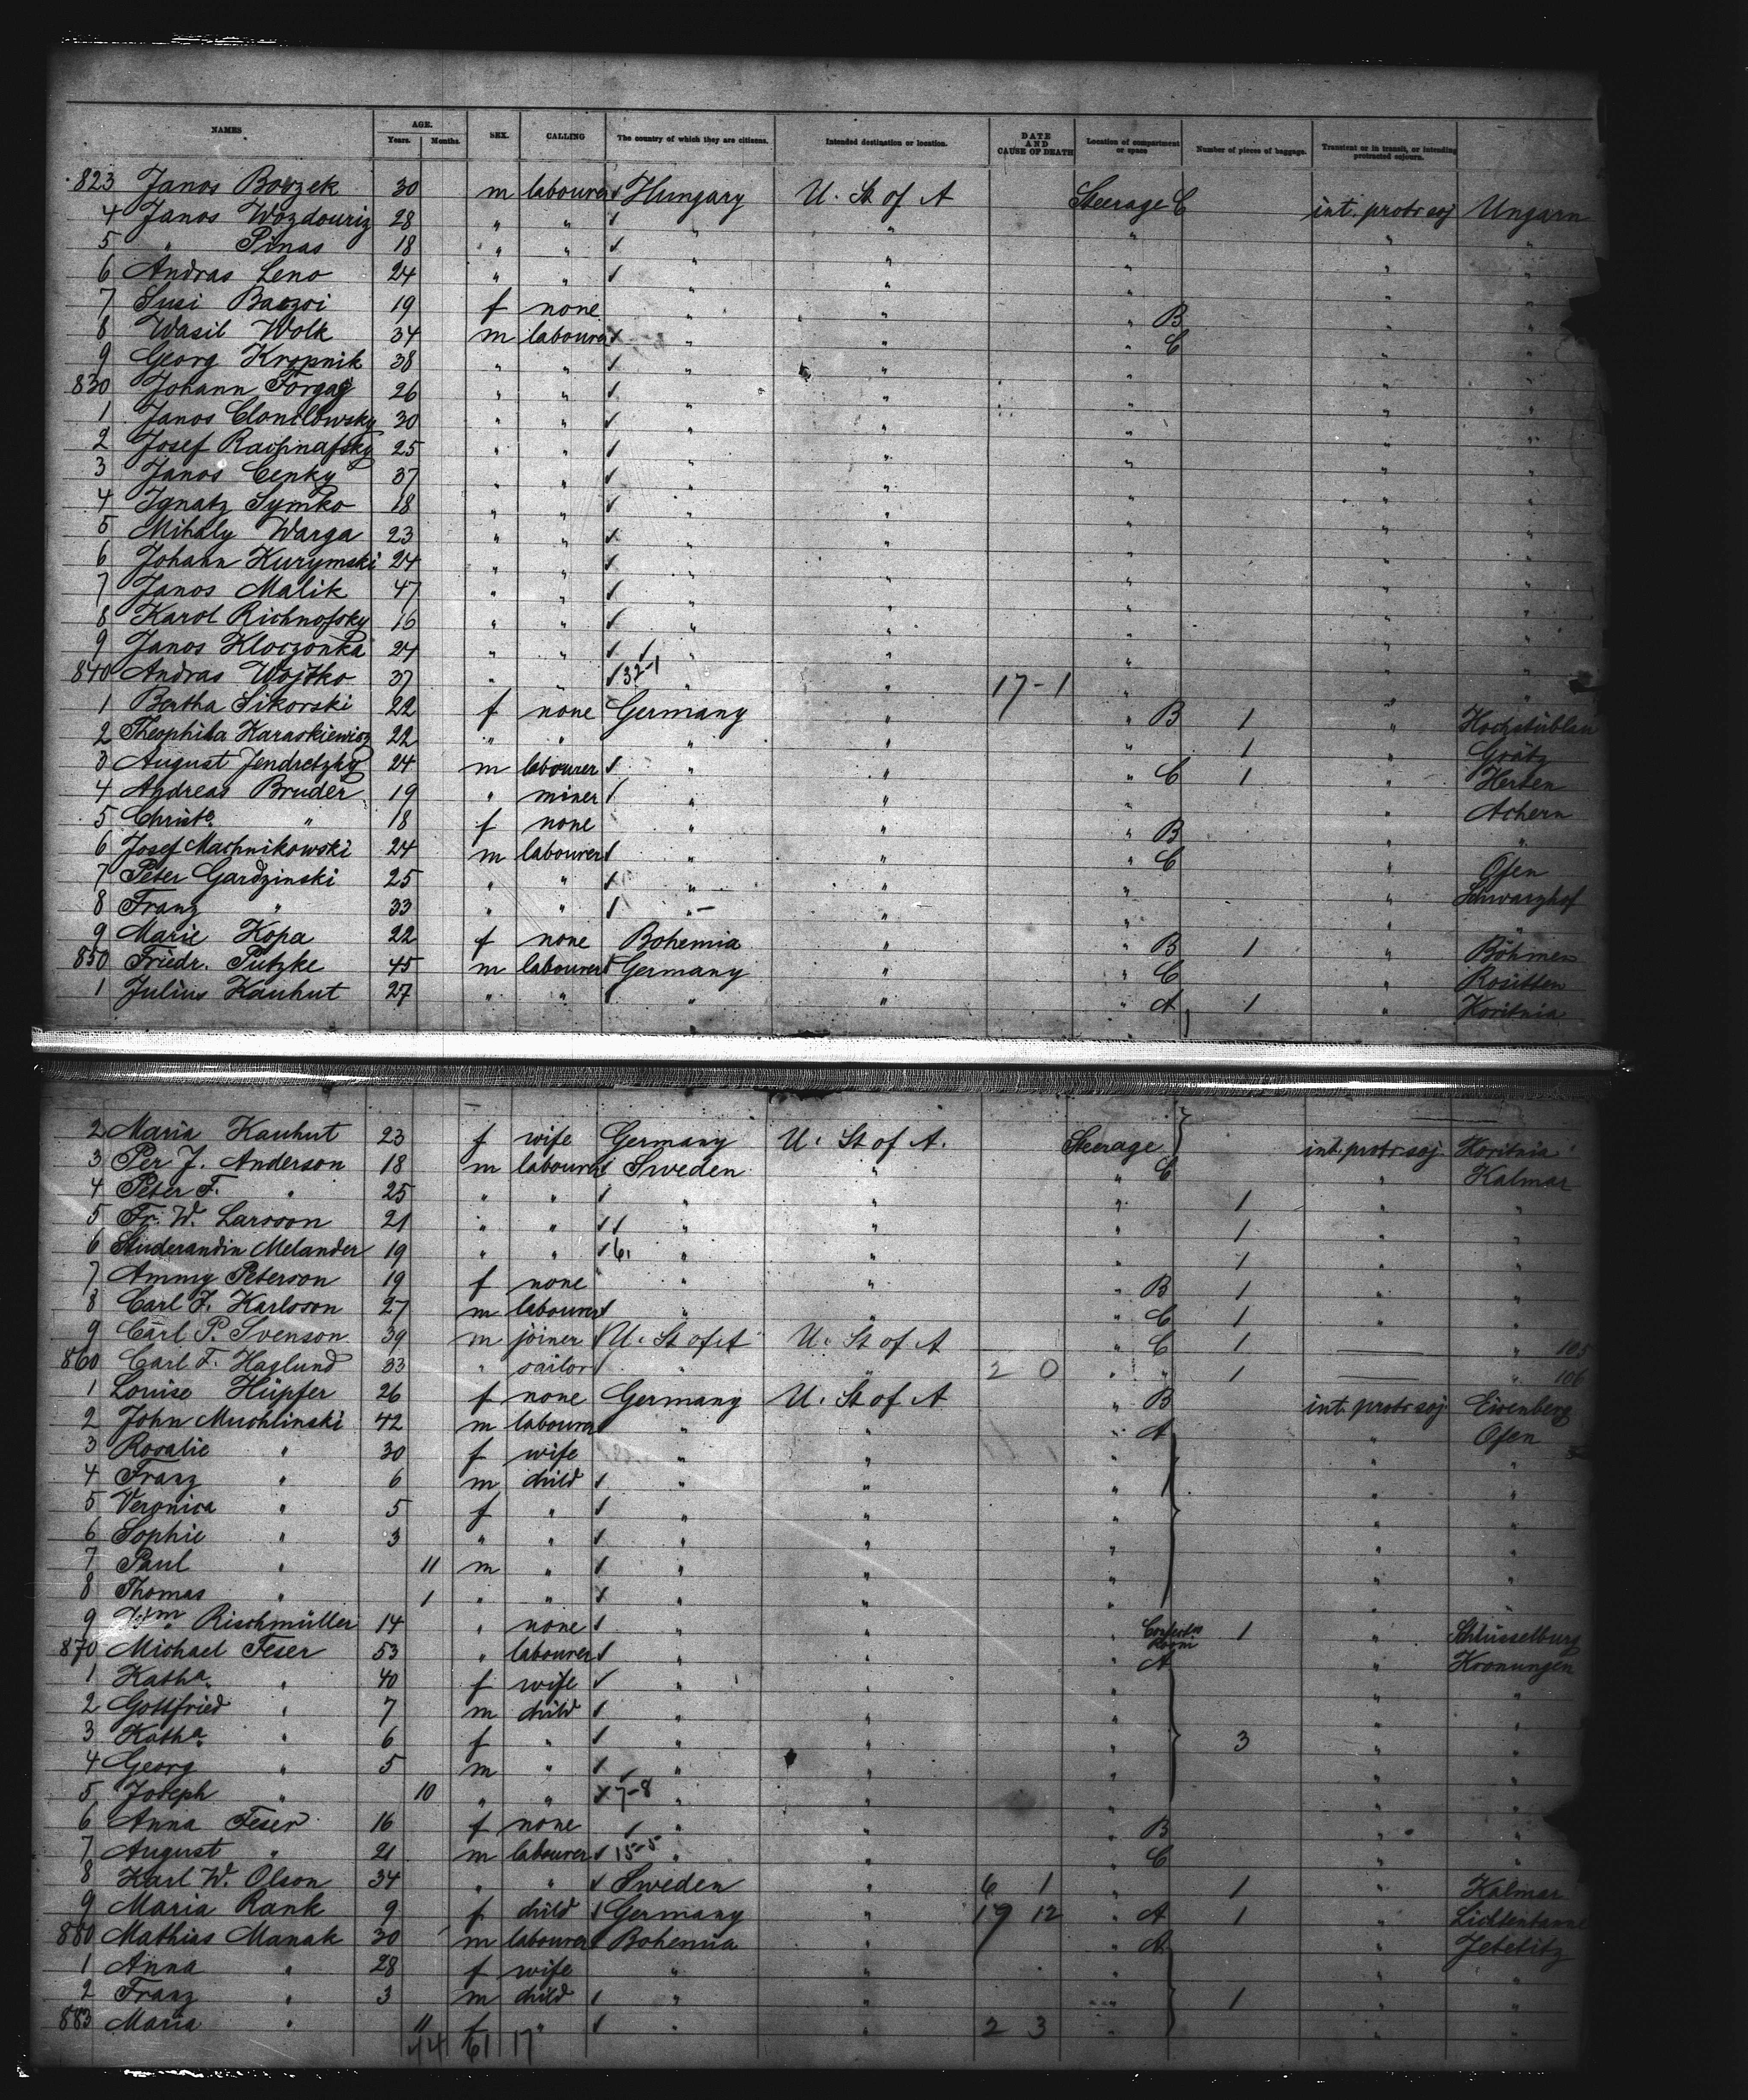 NAMES AGE. Years. Months. SEX. CALLING The country of which they are citizens. Intended destination or location. DATE AND CAUSE OF DEATH Location of compartment or space Number of pieces of baggage. Transient or in transit, or intending protracted sojourn.
823 Janos 30 m labourer Hungary U. St of A Steerage C int. protr soj Ungarn
4 Janos Wozdouriz 28 " " " " " " "
5 " Pinas 18 " " " " " " "
6 Andras Leno 24 " " " " " " "
7 Susi 19 f none " " " B " "
8 Wasil Wolk 34 m labourer " " " C " "
9 Georg Kropnik 38 " " " " " " "
830 Johann Forgag 26 " " " " " " "
1 Janos 30 " " " " " " "
2 Josef 25 " " " " " " "
3 Janos Cenky 37 " " " " " " "
4 Ignatz Symko 18 " " " " " " "
5 Mihaly Warga 23 " " " " " " "
6 Johann Kurymski 24 " " " " " " "
7 Janos Malik 47 " " " " " " "
8 Karol Richnofsky 16 " " " " " " "
9 Janos Kloczonka 24 " " " " " " "
840 Andras Wojtko 37 " " 32-1 " " 17-1 " " "
1 Bertha Sikorski 22 f none Germany " " B 1 " Hochstüblau
2 Theophila Karaskiewicz 22 " " " " " 1 " Grätz
3 August Jendretzky 24 m labourer " " " C 1 " Herten
4 Andreas Bruder 19 " miner " " " " Achern
5 Christe. " 18 f none " " " B " "
6 Josef Machnikowski 24 m labourer " " " C " Ofen
7 Peter Gardzinski 25 " " " " " " Schwarzhof
8 Franz " 33 " " " " " " "
9 Marie Kopa 22 f none Bohemia " " B 1 " Böhmen
850 Friedr. Putzke 45 m labourer Germany " " C " Rositten
1 Julius Kauhut 27 " " " " " A 1 " Koritnia
2 Maria Kauhut 23 f wife Germany U. St of A. Steerage int. protr soj. Koritnia
3 Per J. Anderson 18 m labourer Sweden " " C " Kalmar
4 Peter F. " 25 " " " " " 1 " "
5 Fr. W. Larsson 21 " " " " " 1 " "
6 Studerandin Melander 19 " " 6 " " " 1 " "
7 Ammy Peterson 19 f none " " " B 1 " "
8 Carl F. Karlsson 27 m labourer " " " C 1 " "
9 Carl P. Svenson 39 m joiner U. St of A U. St of A " C 1 " 105
860 Carl F. Haglund 33 " sailor " " 2 0 " " 1 " 106
1 Louise Hüpfer 26 f none Germany U. St of A " B int. protr soj Eisenberg
2 John Muchlinski 42 m labourer " " " A " Ofen
3 Rosalie " 30 f wife " " " " "
4 Franz " 6 m child " " " " "
5 Veronica " 5 f " " " " " "
6 Sophie " 3 " " " " " " "
7 Paul " 11 m " " " " " "
8 Thomas " 1 " " " " " " "
9 Wm. Rischmüller 14 " none " " " Room 1 " Schlüsselburg
870 Michael Feser 53 " labourer " " " A " Kronungen
1 Katha. " 40 f wife " " " " "
2 Gottfried " 7 m child " " " " "
3 Katha. " 6 f " " " " 3 " "
4 Georg " 5 m " " " " " "
5 Joseph " 10 " " 7-8 " " " " "
6 Anna Feser 16 f none " " " B " "
7 August " 21 m labourer 15-5 " " " C " "
8 Karl W. Olson 34 " " Sweden " 6 1 " " 1 " Kalmar
9 Maria Rank 9 f child Germany " 19 12 " A 1 " Lichtentanne
880 Mathias Manak 30 m labourer Bohemia " " A " Jetetitz
1 Anna " 28 f wife " " " " "
2 Franz " 3 m child " " " 1 " "
883 Maria " 11 f " " " 2 3 " " "
44 61 17